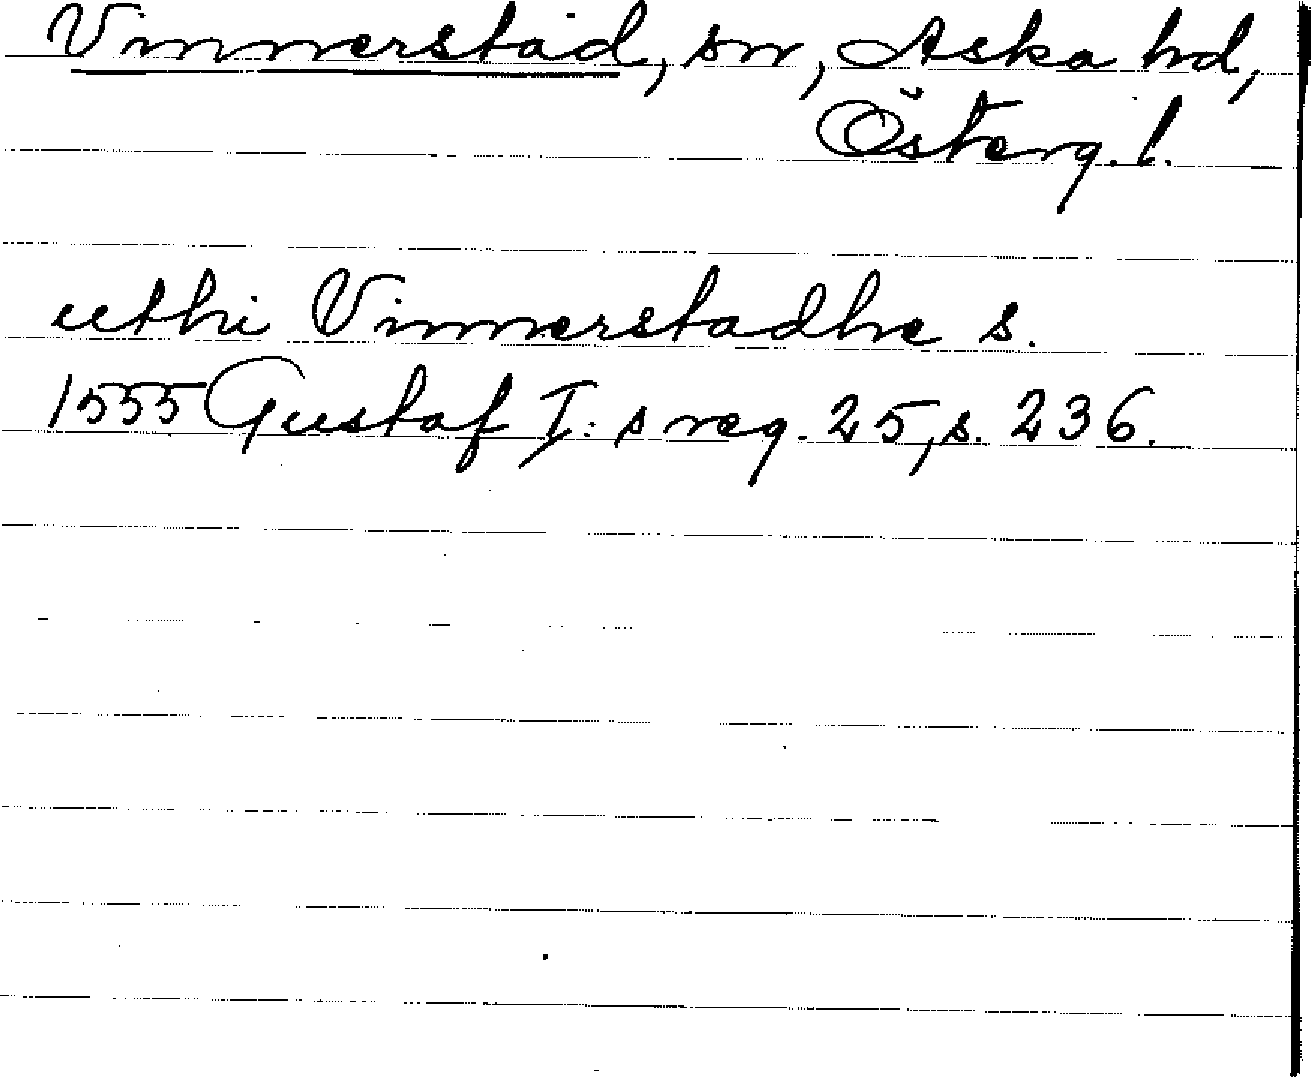 Vinnerstad, sn, Aska hd,
Österg. l.
uthi Vinnerstadhe s.
1555 Gustaf I: s reg. 25, s. 236.